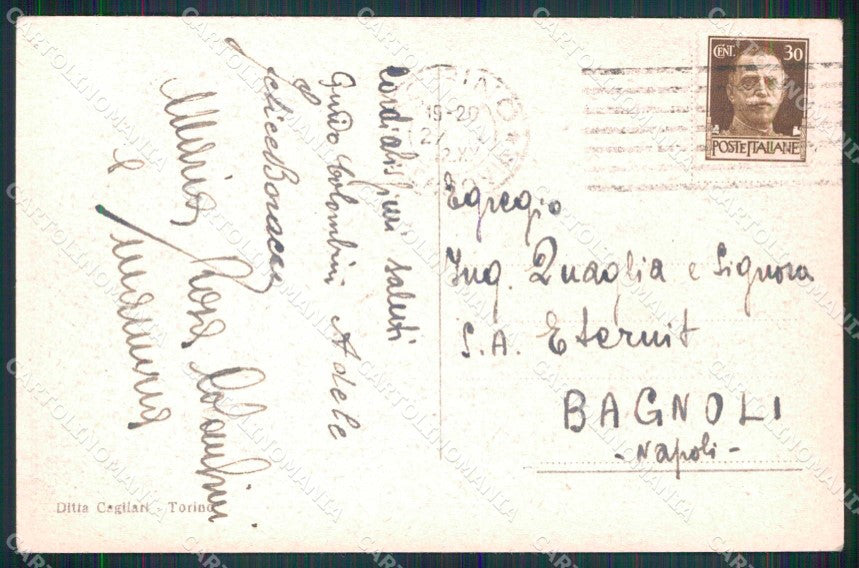 Cordialissimi saluti
Guido Colombini Adele
Maria Rosa Colombini
e mamma
CENT. 30
POSTE ITALIANE
19-20
Egregio
Ing. Quaglia e Signora
S.A. Eternit
BAGNOLI
- Napoli -
Ditta Cagliari - Torino
CARTOLINOMANIA